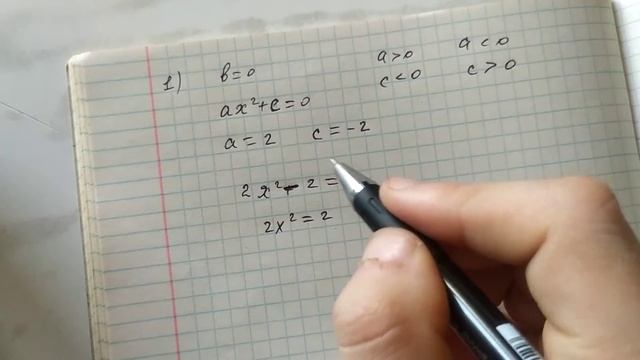 1) b=0 a>0 a<0
c<0 c>0
ax²+c=0
a=2 c=-2
2x²-2=
2x²=2